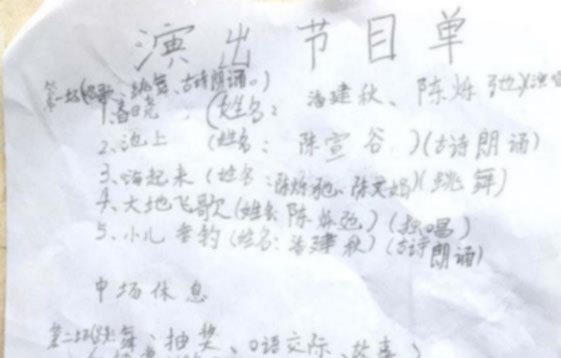 演出节目单
第一场(唱歌、跳舞、古诗朗诵。)
1、春晓 (姓名: 潘建秋、陈烁弛)(演唱
2、池上 (姓名: 陈宣谷)(古诗朗诵)
3、嗨起来(姓名:陈烁弛、陈文娟)(跳舞)
4、大地飞歌(姓名:陈烁弛)(独唱)
5、小儿垂钓(姓名:潘建秋)(古诗朗诵)
中场休息
第二场(跳舞、抽奖、口语交际、故事)